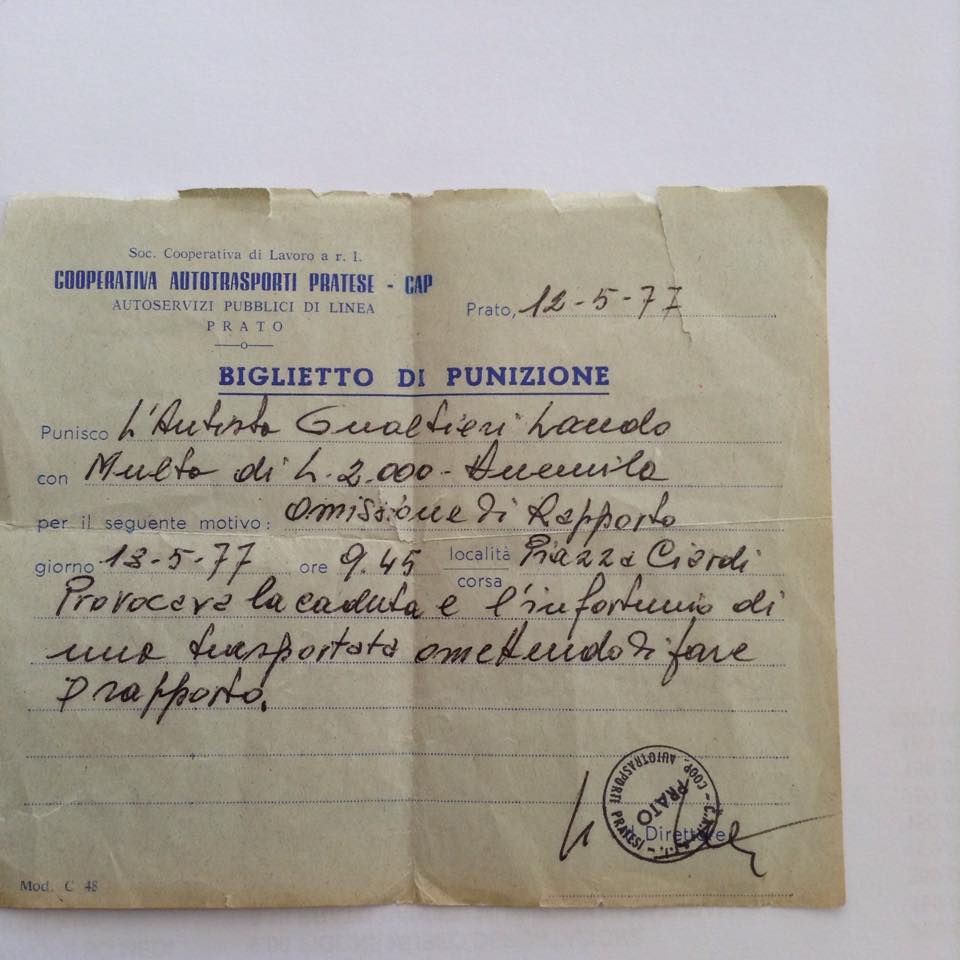 Soc. Cooperativa di Lavoro a r. l.
COOPERATIVA AUTOTRASPORTI PRATESE - CAP
AUTOSERVIZI PUBBLICI DI LINEA
PRATO
Prato, 12-5-77
BIGLIETTO DI PUNIZIONE
Punisco L'Autista Gualtieri Lando
con Multa di L. 2.000 - Duemila
per il seguente motivo: Omissione di Rapporto
giorno 13-5-77 ore 9.45 località corsa Piazza Ciardi
Provocava la caduta e l'infortunio di
una trasportata omettendo di fare
rapporto.
COOP. AUTOTRASPORTI PRATESI
PRATO
Il Direttore
Mod. C 48